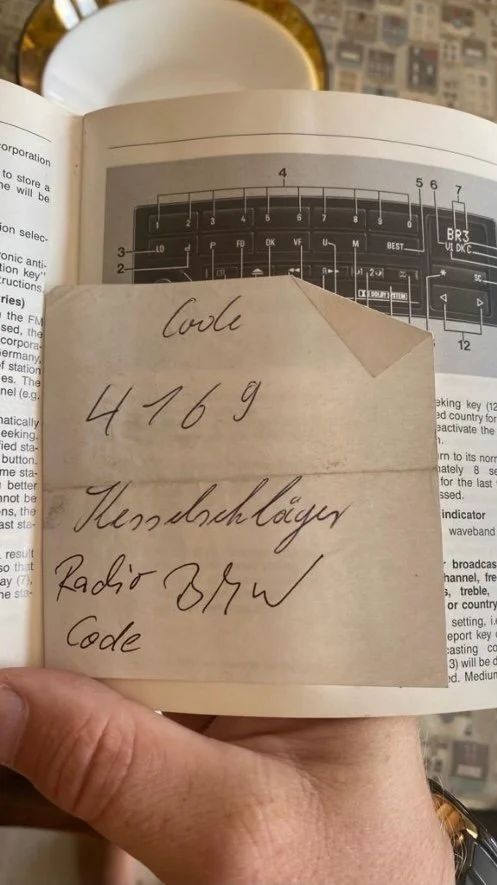 corporation
to store a
ne will be
ion selec-
ronic anti-
tion key"
tructions.
ries)
n the FM
sed, the
corpora-
ermany,
of station
es. The
nel (e.g.
matically
eeking.
fied sta-
button.
me sta-
better
nnot be
ons, the
ast sta-
result
so that
ay (7),
he sta-
4
5 6 7
1 2 3 4 5 6 7 8 9 0
BR3
U1 DK C
3
LO P FD DK VF U M BEST
2
SC
DOLBY SYSTEM
12
Code
4169
Kesselschläger
Radio BMW
Code
eking key (12
ed country for
eactivate the
n.
rn to its norm
nately 8 se
for the last
ssed.
indicator
waveband
r broadcas
hannel, fre
s, treble,
or country
setting, i.e
eport key
casting co
3) will be d
ed. Medium